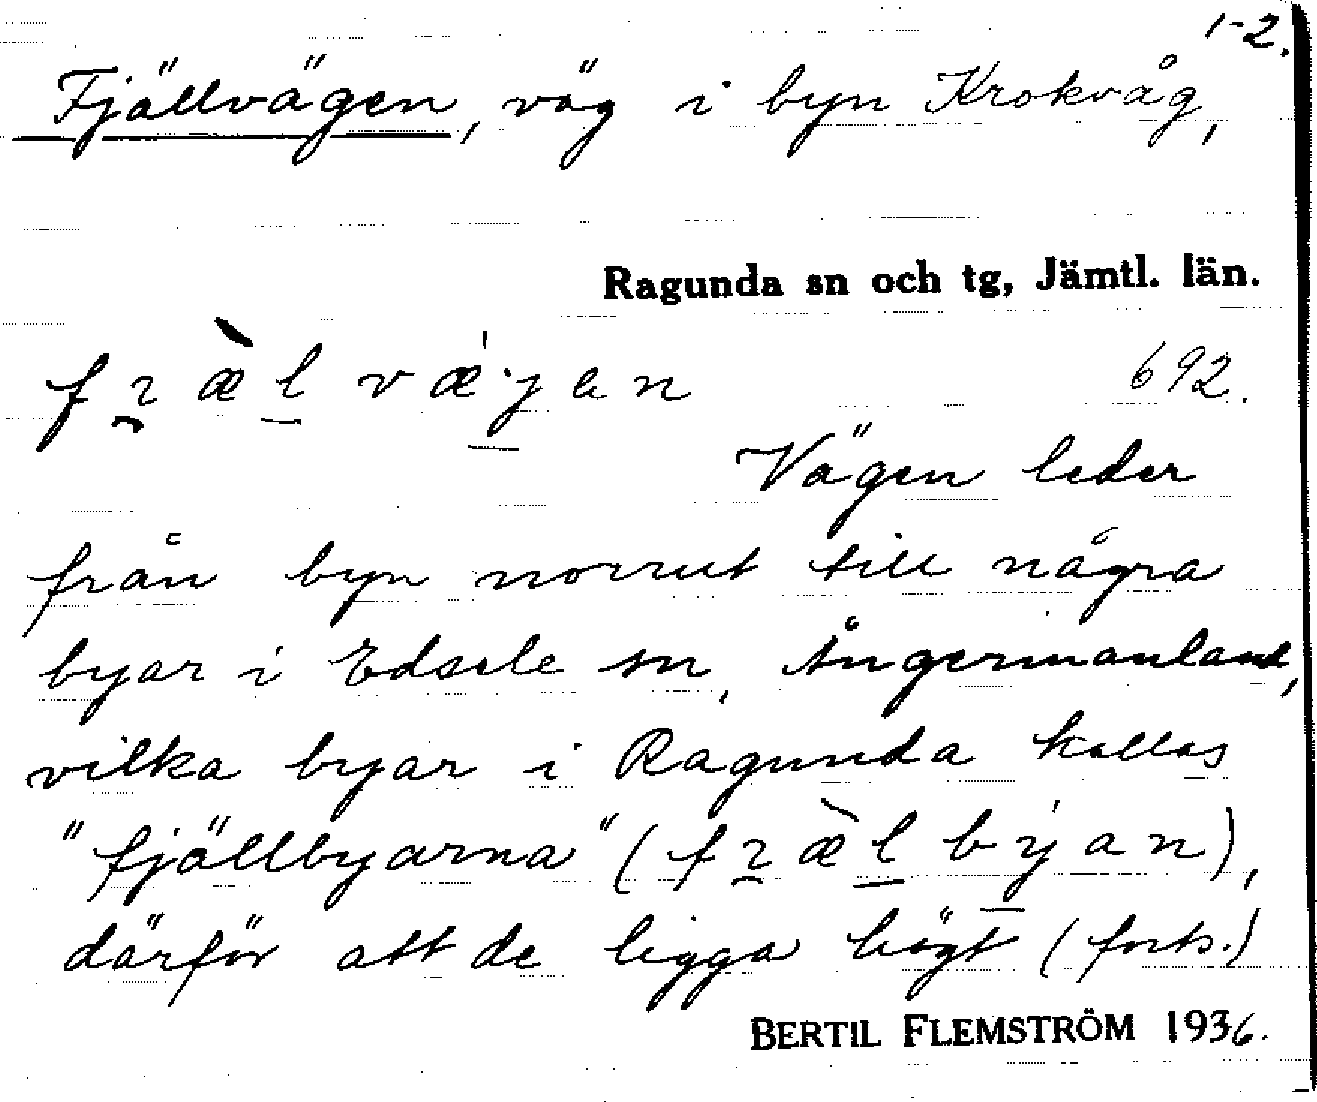 1-2.
Fjällvägen, väg i byn Krokvåg,
Ragunda sn och tg, Jämtl. län.
692.
Vägen leder
från byn norrut till några
byar i Edsele sn, Ångermanland,
vilka byar i Ragunda kallas
"fjällbyarna" (fɿæ̀l býan),
därför att de ligga högt (forts.)
BERTIL FLEMSTRÖM 1936.